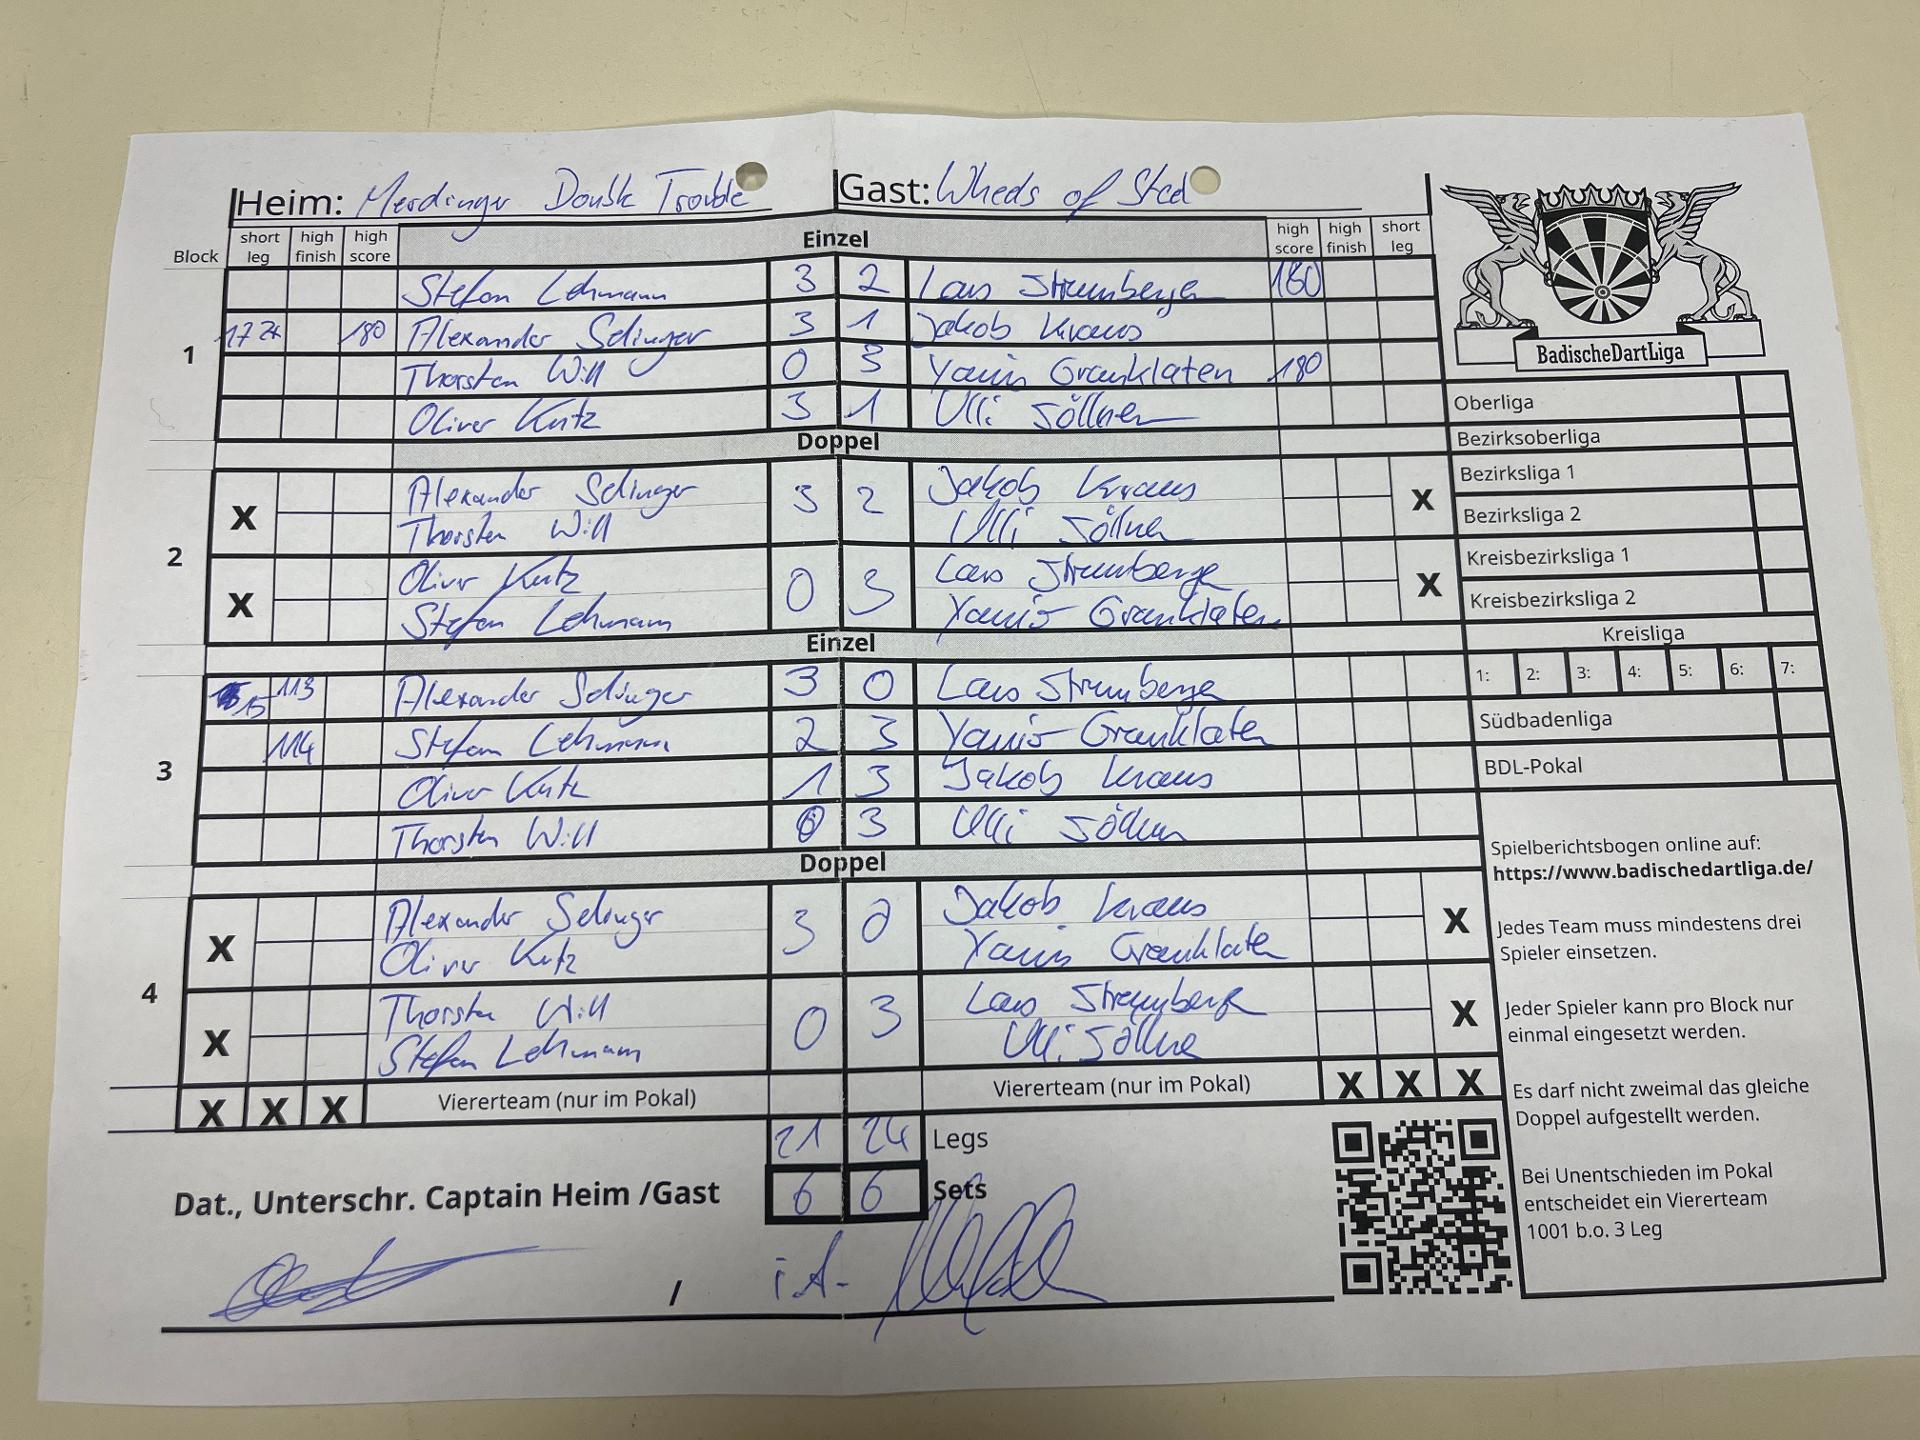 Heim: Merdinger Double Trouble Gast: Wheels of Steel
Block short leg high finish high score Einzel high score high finish short leg
1
Stefan Lehmann 3 2 Lars Stremberger 180
17 180 Alexander Selinger 3 1 Jakob Kraus
Thorsten Will 0 3 Yanis Granklaten 180
Oliver Kutz 3 1 Ulli Söllner
Doppel
2
X Alexander Selinger 3 2 Jakob Kraus X
Thorsten Will Ulli Söllner
X Oliver Kutz 0 3 Lars Stremberger X
Stefan Lehmann Yanis Granklaten
Einzel
3
15 113 Alexander Selinger 3 0 Lars Stremberger
114 Stefan Lehmann 2 3 Yanis Granklaten
Oliver Kutz 1 3 Jakob Kraus
Thorsten Will 0 3 Ulli Söllner
Doppel
4
X Alexander Selinger 3 0 Jakob Kraus X
Oliver Kutz Yanis Granklaten
X Thorsten Will 0 3 Lars Stremberger X
Stefan Lehmann Ulli Söllner
X X X Viererteam (nur im Pokal) Viererteam (nur im Pokal) X X X
21 24 Legs
Dat., Unterschr. Captain Heim /Gast 6 6 Sets
/ i.A.
BadischeDartLiga
Oberliga
Bezirksoberliga
Bezirksliga 1
Bezirksliga 2
Kreisbezirksliga 1
Kreisbezirksliga 2
Kreisliga
1: 2: 3: 4: 5: 6: 7:
Südbadenliga
BDL-Pokal
Spielberichtsbogen online auf:
https://www.badischedartliga.de/
Jedes Team muss mindestens drei
Spieler einsetzen.
Jeder Spieler kann pro Block nur
einmal eingesetzt werden.
Es darf nicht zweimal das gleiche
Doppel aufgestellt werden.
Bei Unentschieden im Pokal
entscheidet ein Viererteam
1001 b.o. 3 Leg